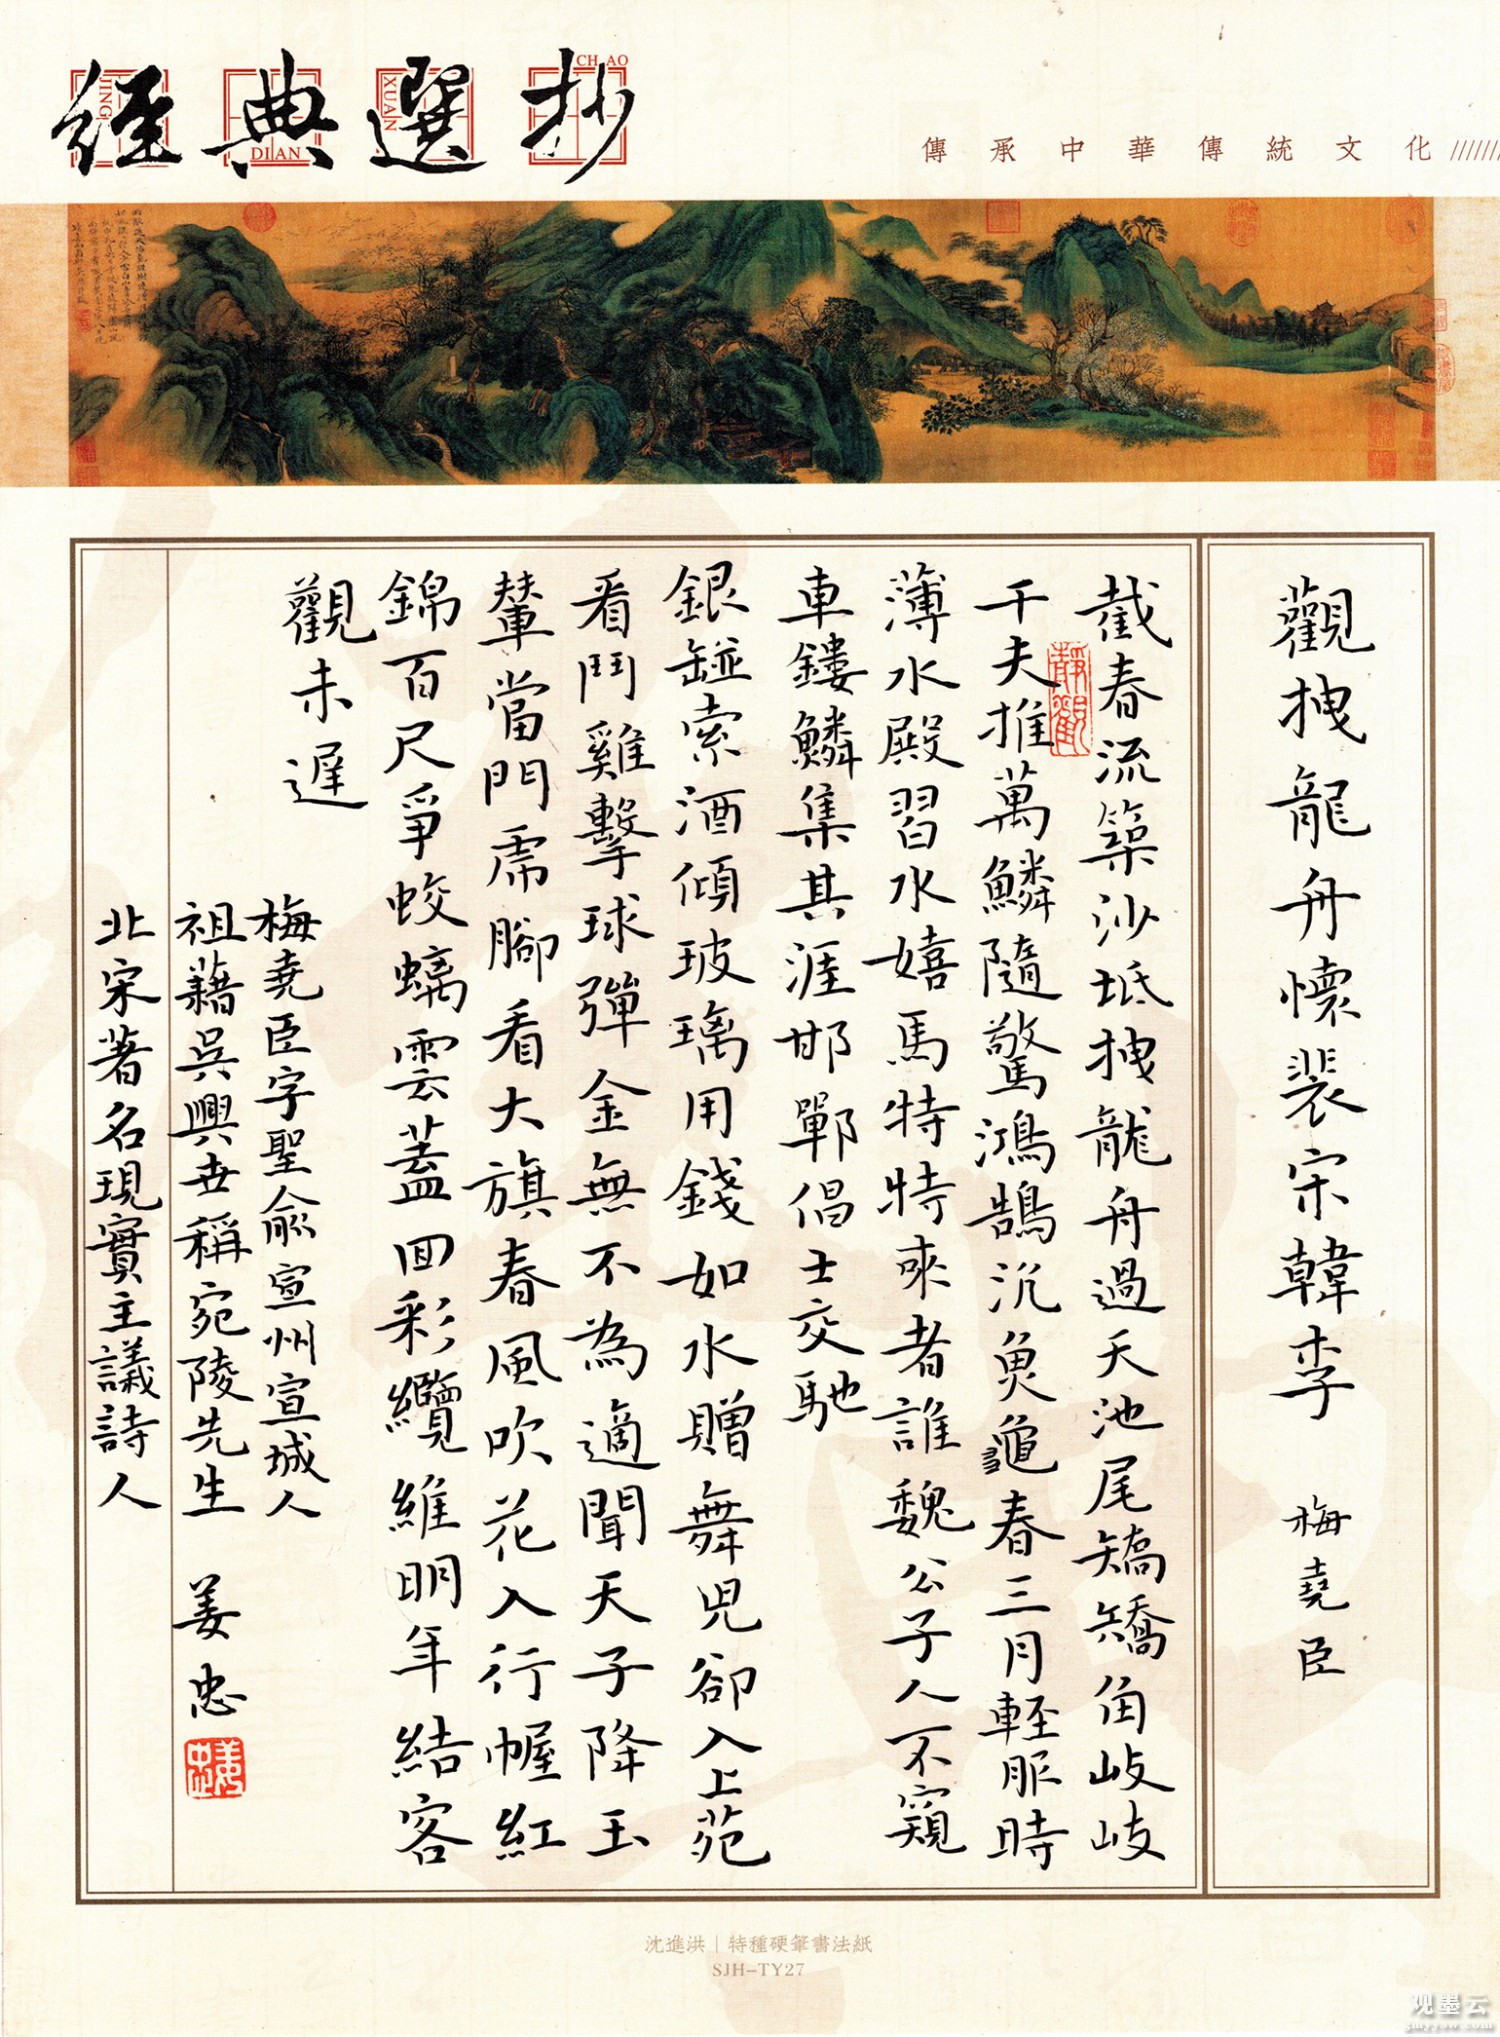 經典選抄
JING
DIAN
XUAN
CHAO
傳承中華傳統文化
觀拽龍舟懷裴宋韓李
梅堯臣
截春流築沙坻拽龍舟過天池尾矯矯角岐岐
千夫推萬鱗隨驚鴻鵠沉魚龜春三月輕服時
薄水殿習水嬉馬特特來者誰魏公子人不窺
車鏤鱗集其涯邯鄲倡士交馳
銀䀇索酒傾玻璃用錢如水贈舞兒卻入上苑
看鬥雞擊球彈金無不為適聞天子降玉
輦當門虎腳看大旗春風吹花入行幄紅
錦百尺爭蛟螭雲蓋回彩纜維明年結客
觀未遲
梅堯臣字聖俞宣州宣城人
祖藉吳興世稱宛陵先生
北宋著名現實主議詩人
姜忠
靜觀
姜忠
沈進洪|特種硬筆書法紙
SJH-TY27
观墨云